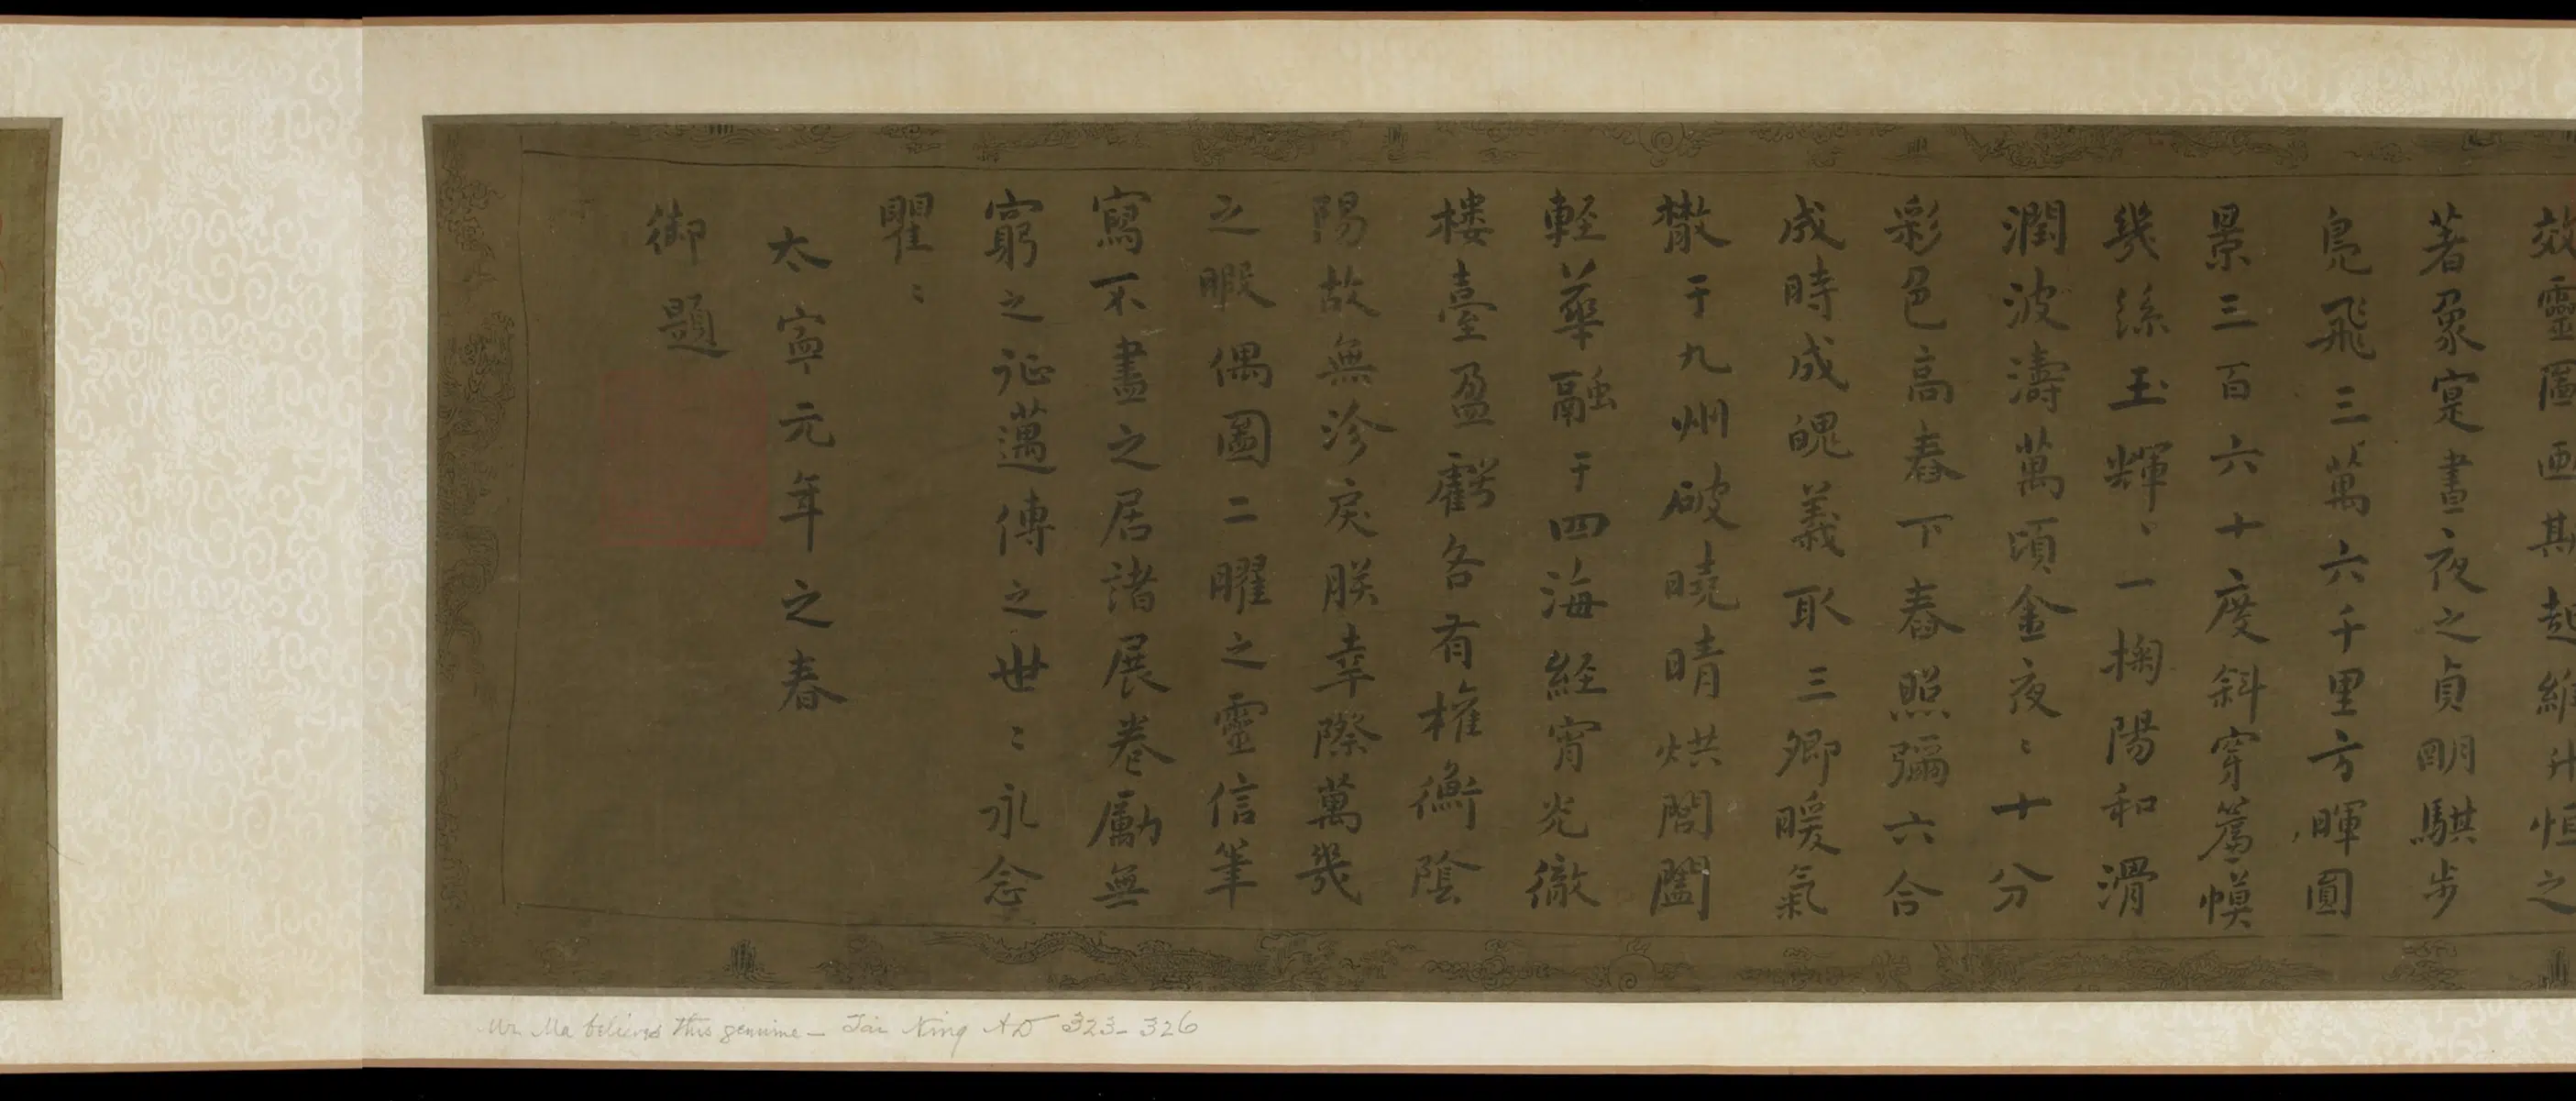 效靈圖画其起維升恒之
著象寔晝夜之貞明騏步
凫飛三萬六千里方暉圓
景三百六十度斜穿篱幙
幾絲玉輝、一掬陽和滑
潤波濤萬頃金夜〻十分
彩色高舂下舂照彌六合
成時成魄義取三鄉暖氣
散于九州破曉晴烘閭闔
輕華融于四海経宵光徹
楼臺盈虧各有權衡陰
陽故無沴戾朕幸際萬幾
之暇偶圖二曜之靈信筆
寫不盡之居諸展卷勵無
窮之征邁傳之世〻永念
瞿〻
太寍元年之春
御題
Mr Ma believes this genuine — Tai Ning AD 323-326